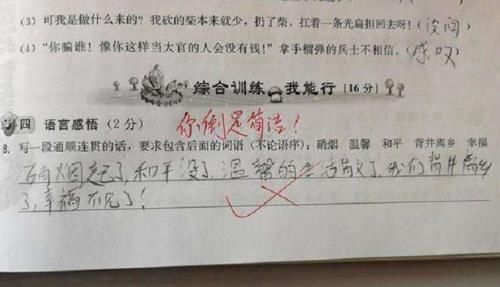 (3) 可我是做什么来的？我砍的柴本来就少，扔了柴，扛着一条光扁担回去呀！(设问)
(4) “你骗谁！像你这样当大官的人会没有钱！”拿手榴弹的兵士不相信。(感叹)
综合训练 我能行 (16分)
四 语言感悟 (2分)
你倒是简洁！
8. 写一段通顺连贯的话，要求包含后面的词语(不论语序)：硝烟 温馨 和平 背井离乡 幸福
硝烟起了，和平没了，温馨的生活散了，我们背井离乡
了，幸福不见了！